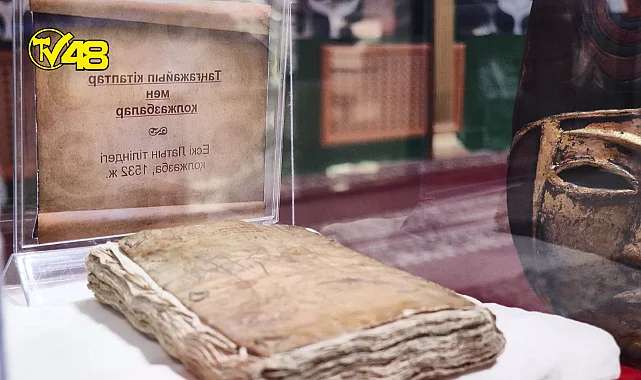 TV48
Таңғажайып кітаптар
мен
қолжазбалар
Ескі Латын тіліндегі
қолжазба, 1532 ж.